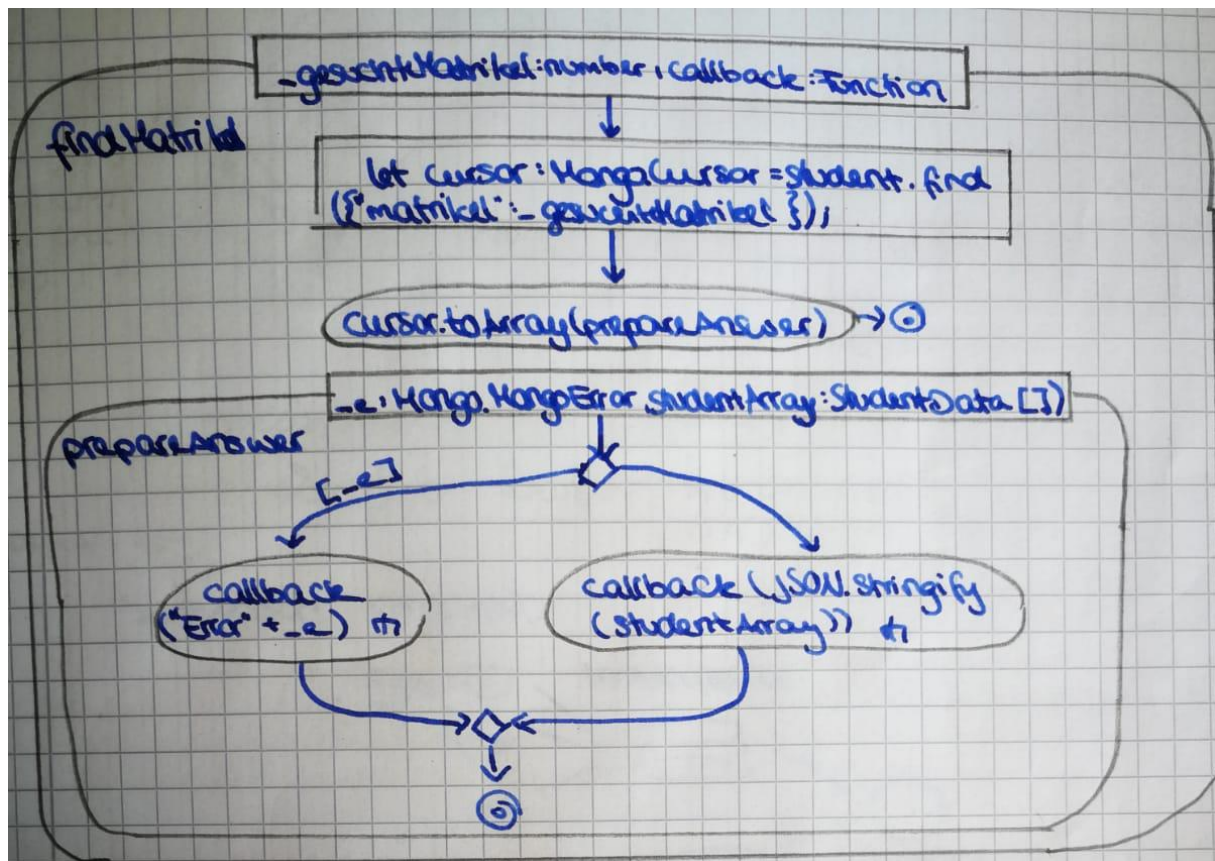 _gesuchteMatrikel:number, callback:Function
findMatrikel
let cursor: MongoCursor = student.find
({"matrikel":_gesuchteMatrikel });
cursor.toArray(prepareAnswer)
_e: Mongo.MongoError, studentArray:StudentData[])
prepareAnswer
[_e]
callback
("Error" + _e)
callback (JSON.stringify
(studentArray))